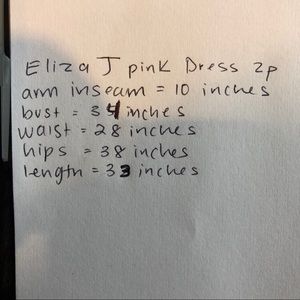 Eliza J pink Dress 2p
arm inseam = 10 inches
bust = 34 inches
waist = 28 inches
hips = 38 inches
length = 33 inches